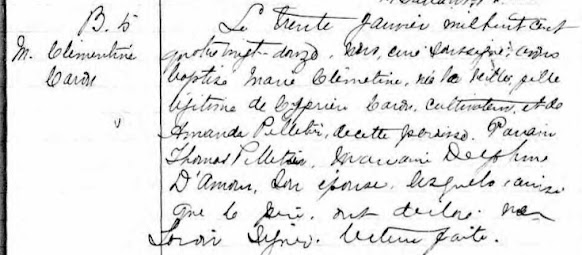 B. 5
M. Clémentine
Caron
Le trente Janvier mil huit cent
quatre vingt-douze, nous, curé soussigné, avons
baptisé Marie Clémetine, née la veille, fille
légitime de Cyprien Caron, cultivateur, et de
Amanda Pelletier, de cette paroisse. Parrain
Thomas Pelletier, Marraine Delphine
D'Amour, son épouse, lesquels, ainsi
que le père, ont déclaré ne
savoir signer. Lecture faite.